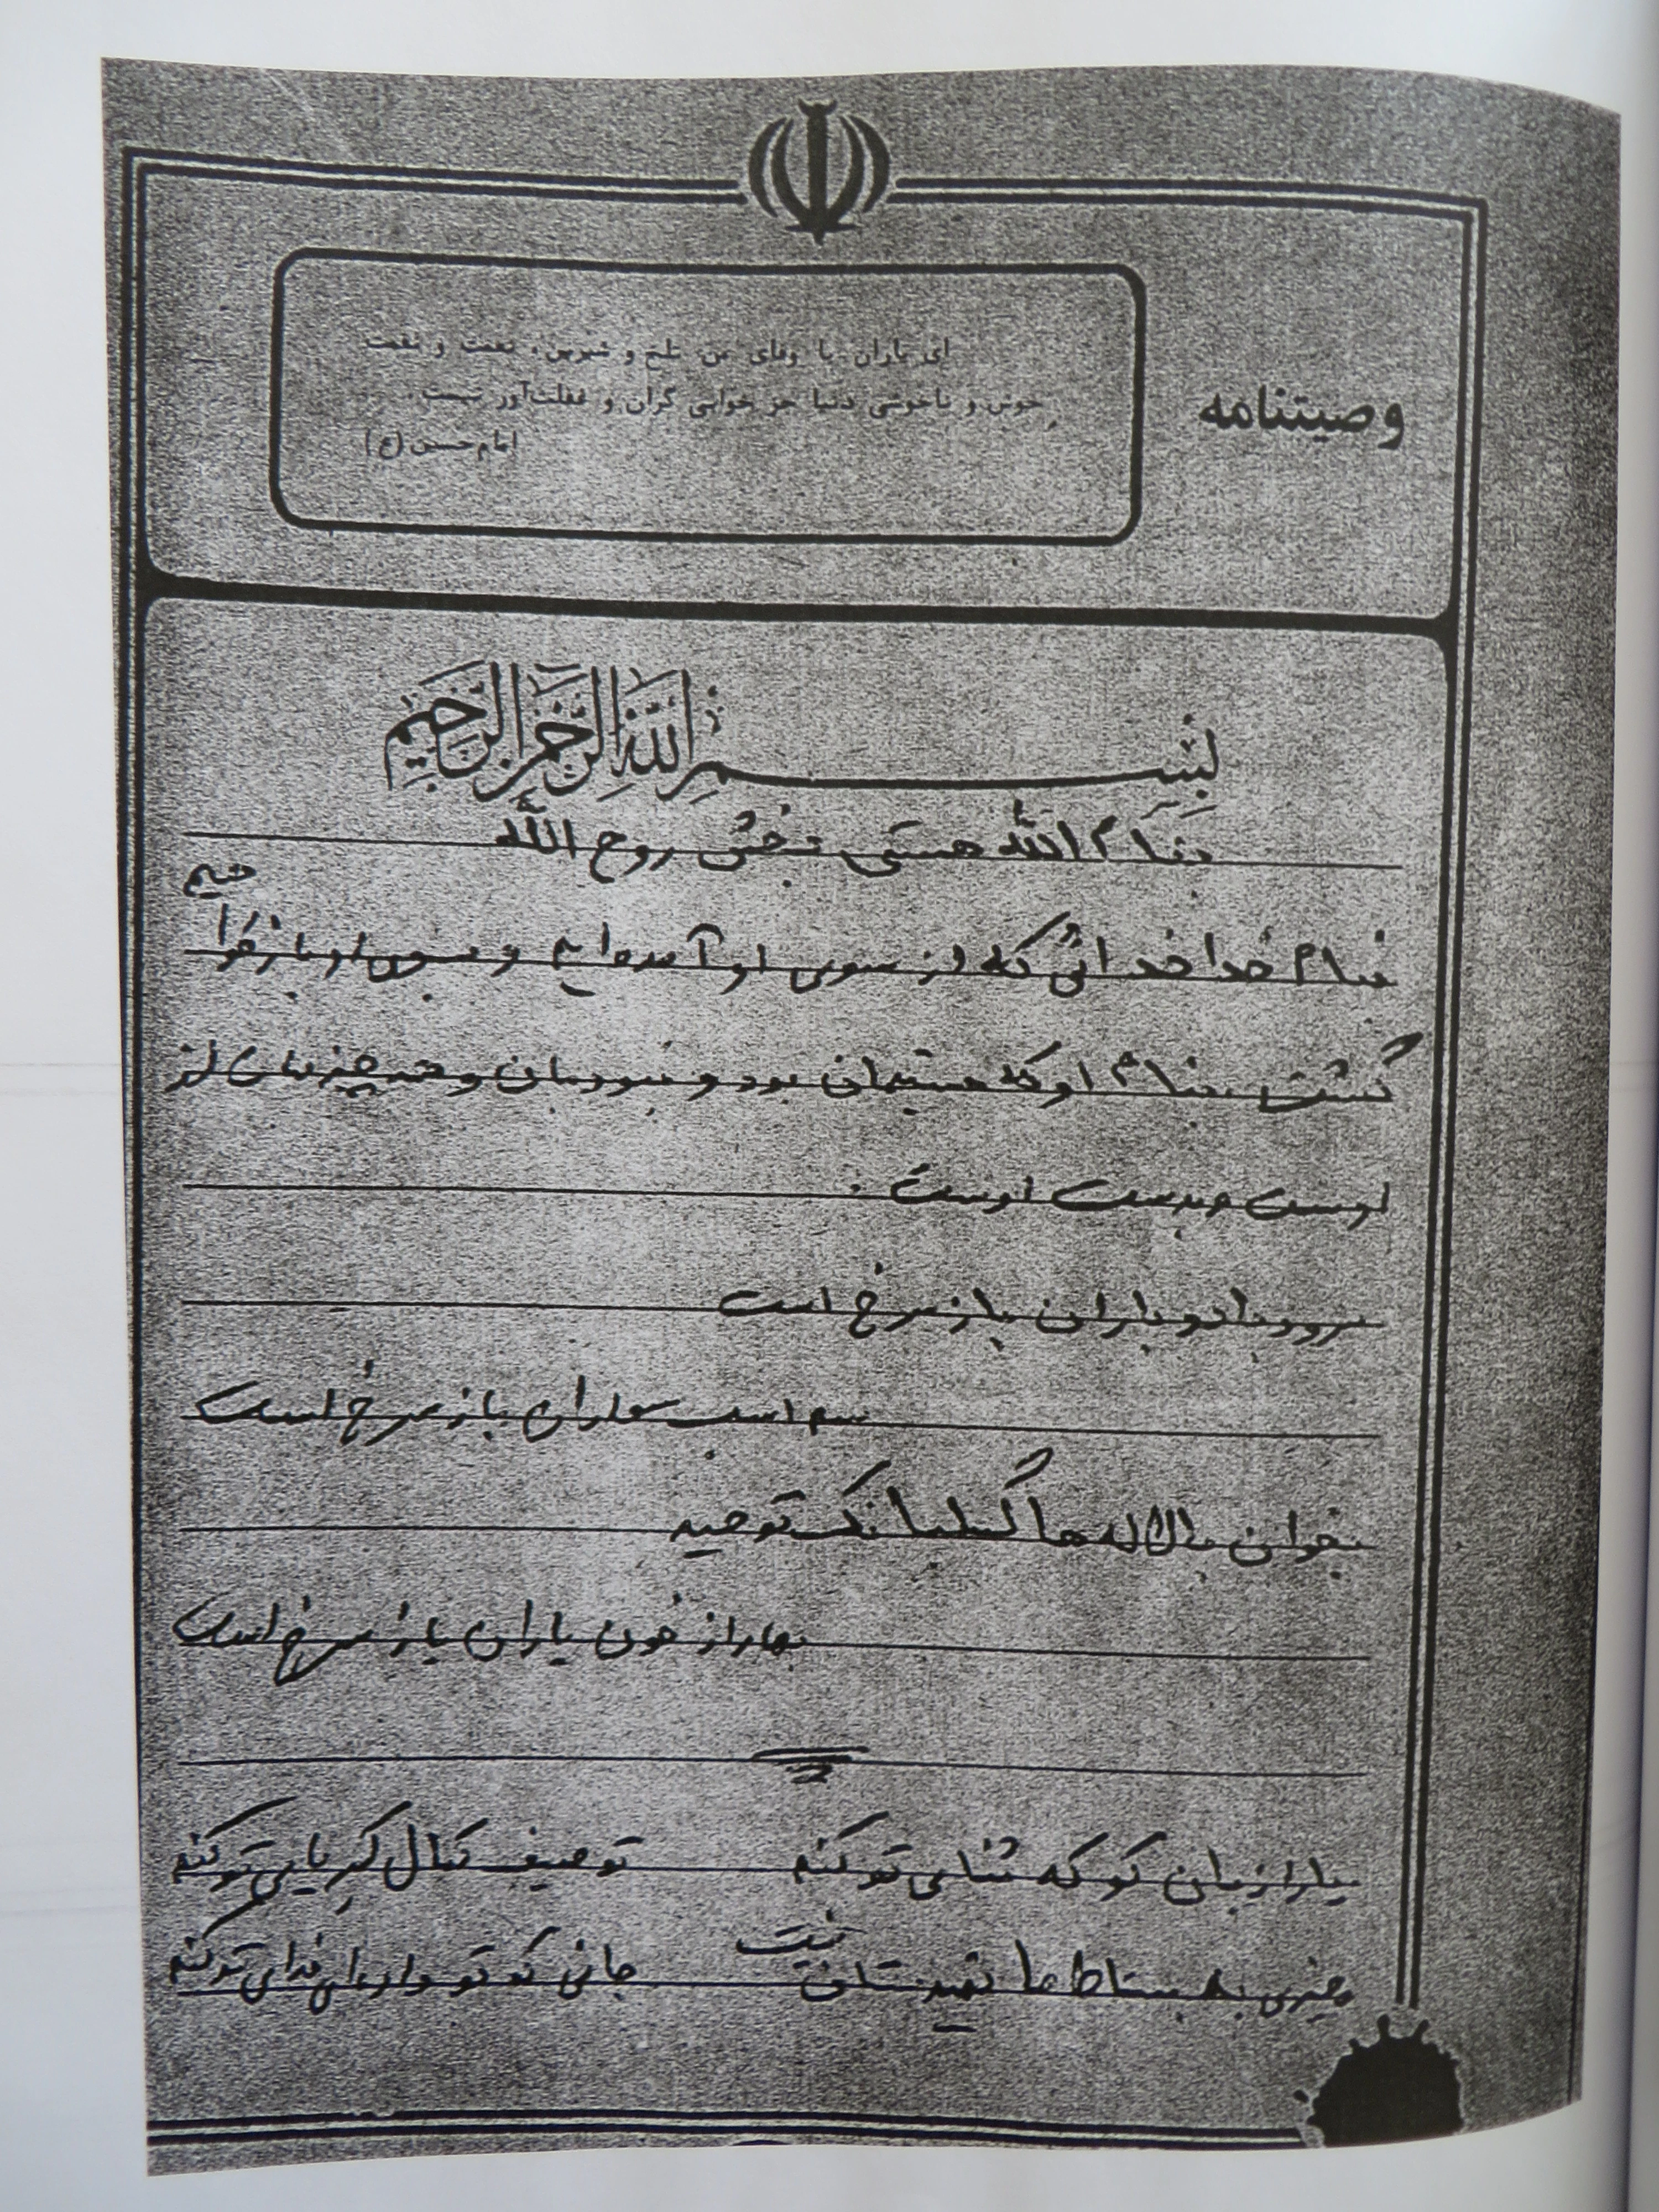 وصیتنامه
ای یاران با وفای من تلخ و شیرین، نعمت و نقمت
خوش و ناخوشی دنیا جز خوابی گران و غفلت‌آور نیست.
امام حسین (ع)
بسم الله الرحمن الرحیم
بنام الله هستی بخش روح الله
بنام خدا خدائی که از سوی او آمده‌ایم و بسوی او باز خوا هیم
گشت بنام او که هستیمان بود و نبودمان و همه چیزمان از
اوست و بدست اوست.
سرود باد و باران باز سرخ است
سم اسب سواران باز سرخ است
بخوان با لاله ها گلبانگ توحید
بهار از خون یاران باز سرخ است
یارا زبان کو که ثنای تو کنم
توصیف کمال کبریایی تو کنم
چیزی به بساط ما تهیدستان نیست
جانی که تو داده‌ای فدای تو کنم